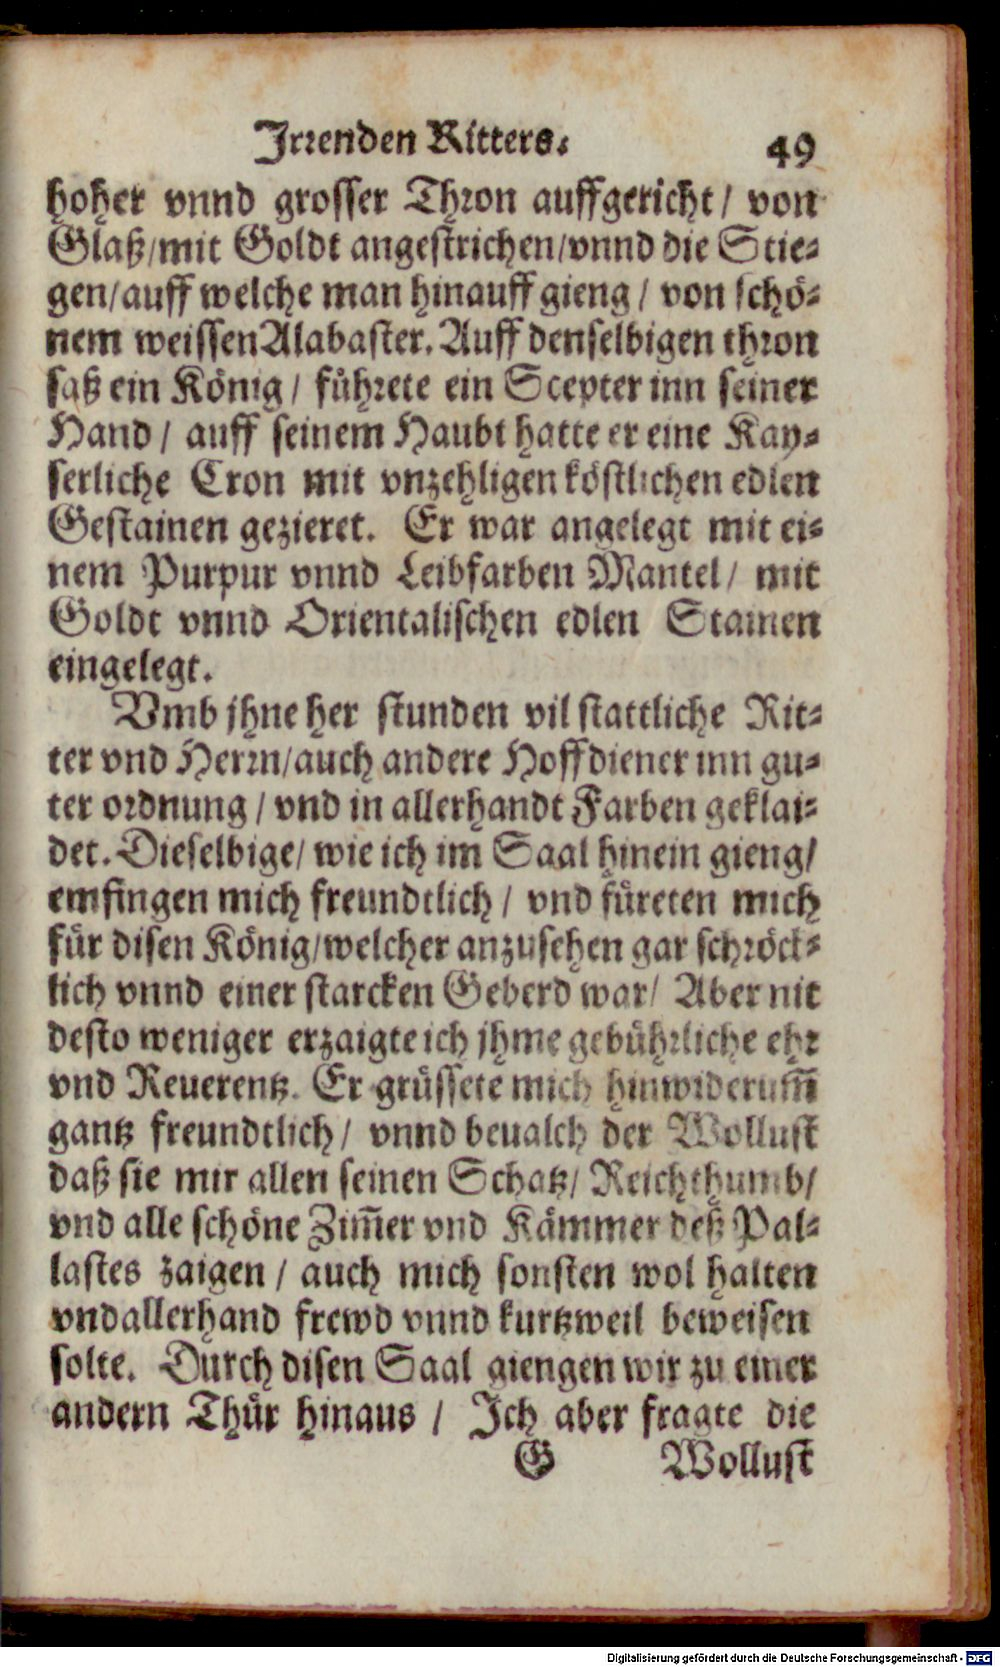 Irrenden Ritters. 49
hoher vnnd grosser Thron auffgericht / von
Glaß/mit Goldt angestrichen/vnnd die Stie-
gen/auff welche man hinauff gieng / von schö-
nem weissen Alabaster. Auff denselbigen thron
saß ein König / führete ein Scepter inn seiner
Hand / auff seinem Haubt hatte er eine Kay-
serliche Cron mit vnzehligen köstlichen edlen
Gestainen gezieret. Er war angelegt mit ei-
nem Purpur vnnd Leibfarben Mantel / mit
Goldt vnnd Orientalischen edlen Stainen
eingelegt.
Vmb jhne her stunden vil stattliche Rit-
ter vnd Herrn/auch andere Hoffdiener inn gu-
ter ordnung / vnd in allerhandt Farben geklai-
det. Dieselbige/ wie ich im Saal hinein gieng/
emfingen mich freundtlich / vnd füreten mich
für disen König/welcher anzusehen gar schröck-
lich vnnd einer starcken Geberd war/ Aber nit
desto weniger erzaigte ich jhme gebührliche ehr
vnd Reuerentz. Er grüssete mich hinwiderum̃
gantz freundtlich / vnnd beualch der Wollust
daß sie mir allen seinen Schatz/ Reichthumb/
vnd alle schöne Zim̃er vnd Kämmer deß Pal-
lastes zaigen / auch mich sonsten wol halten
vnd allerhand frewd vnnd kurtzweil beweisen
solte. Durch disen Saal giengen wir zu einer
andern Thür hinaus / Ich aber fragte die
G Wollust
Digitalisierung gefördert durch die Deutsche Forschungsgemeinschaft - DFG